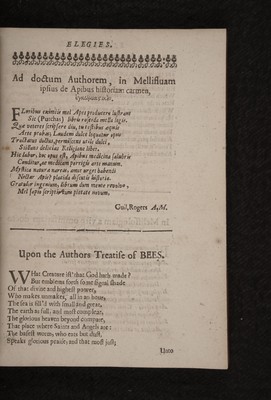 ELEGIES.
Ad doctum Authorem, in Mellifluam
ipsius de Apibus historiam carmen,
FLoribus eximiis mel Apis producere lustrans
Sic (Purchas) libris rustica mella legis.
Quæ veteres scripsere diu, tu testibus æquis
Acta probas; Laudem dulce loquatur opus
Tractatus dulcis,
delicias Religiosa liber.
Hic labor, hic opus est, Apibus medicina salubris
Conditur, ac medicam porrigis arte manum.
Mystica natura natura, amor urget habenti
Noster Apis? placida discutis historia.
Gratulor ingenium, librum dum mente revolvo,
Mel sapis scriptis tam pietate novum.
Guil. Rogers A.M.
Upon the Authors Treatise of BEES.
WHat Creature is't that God hath made?
But emblems forth some signal shade
Of that divine and highest power,
Who makes unmakes, all in an hour,
The sea is fill'd with small and great,
The earth as full, and most compleat,
The glorious heaven beyond compare,
That place where Saints and Angels are:
The basest worm, who eats but dust,
Speaks glorious praise; and that most just;
Unto